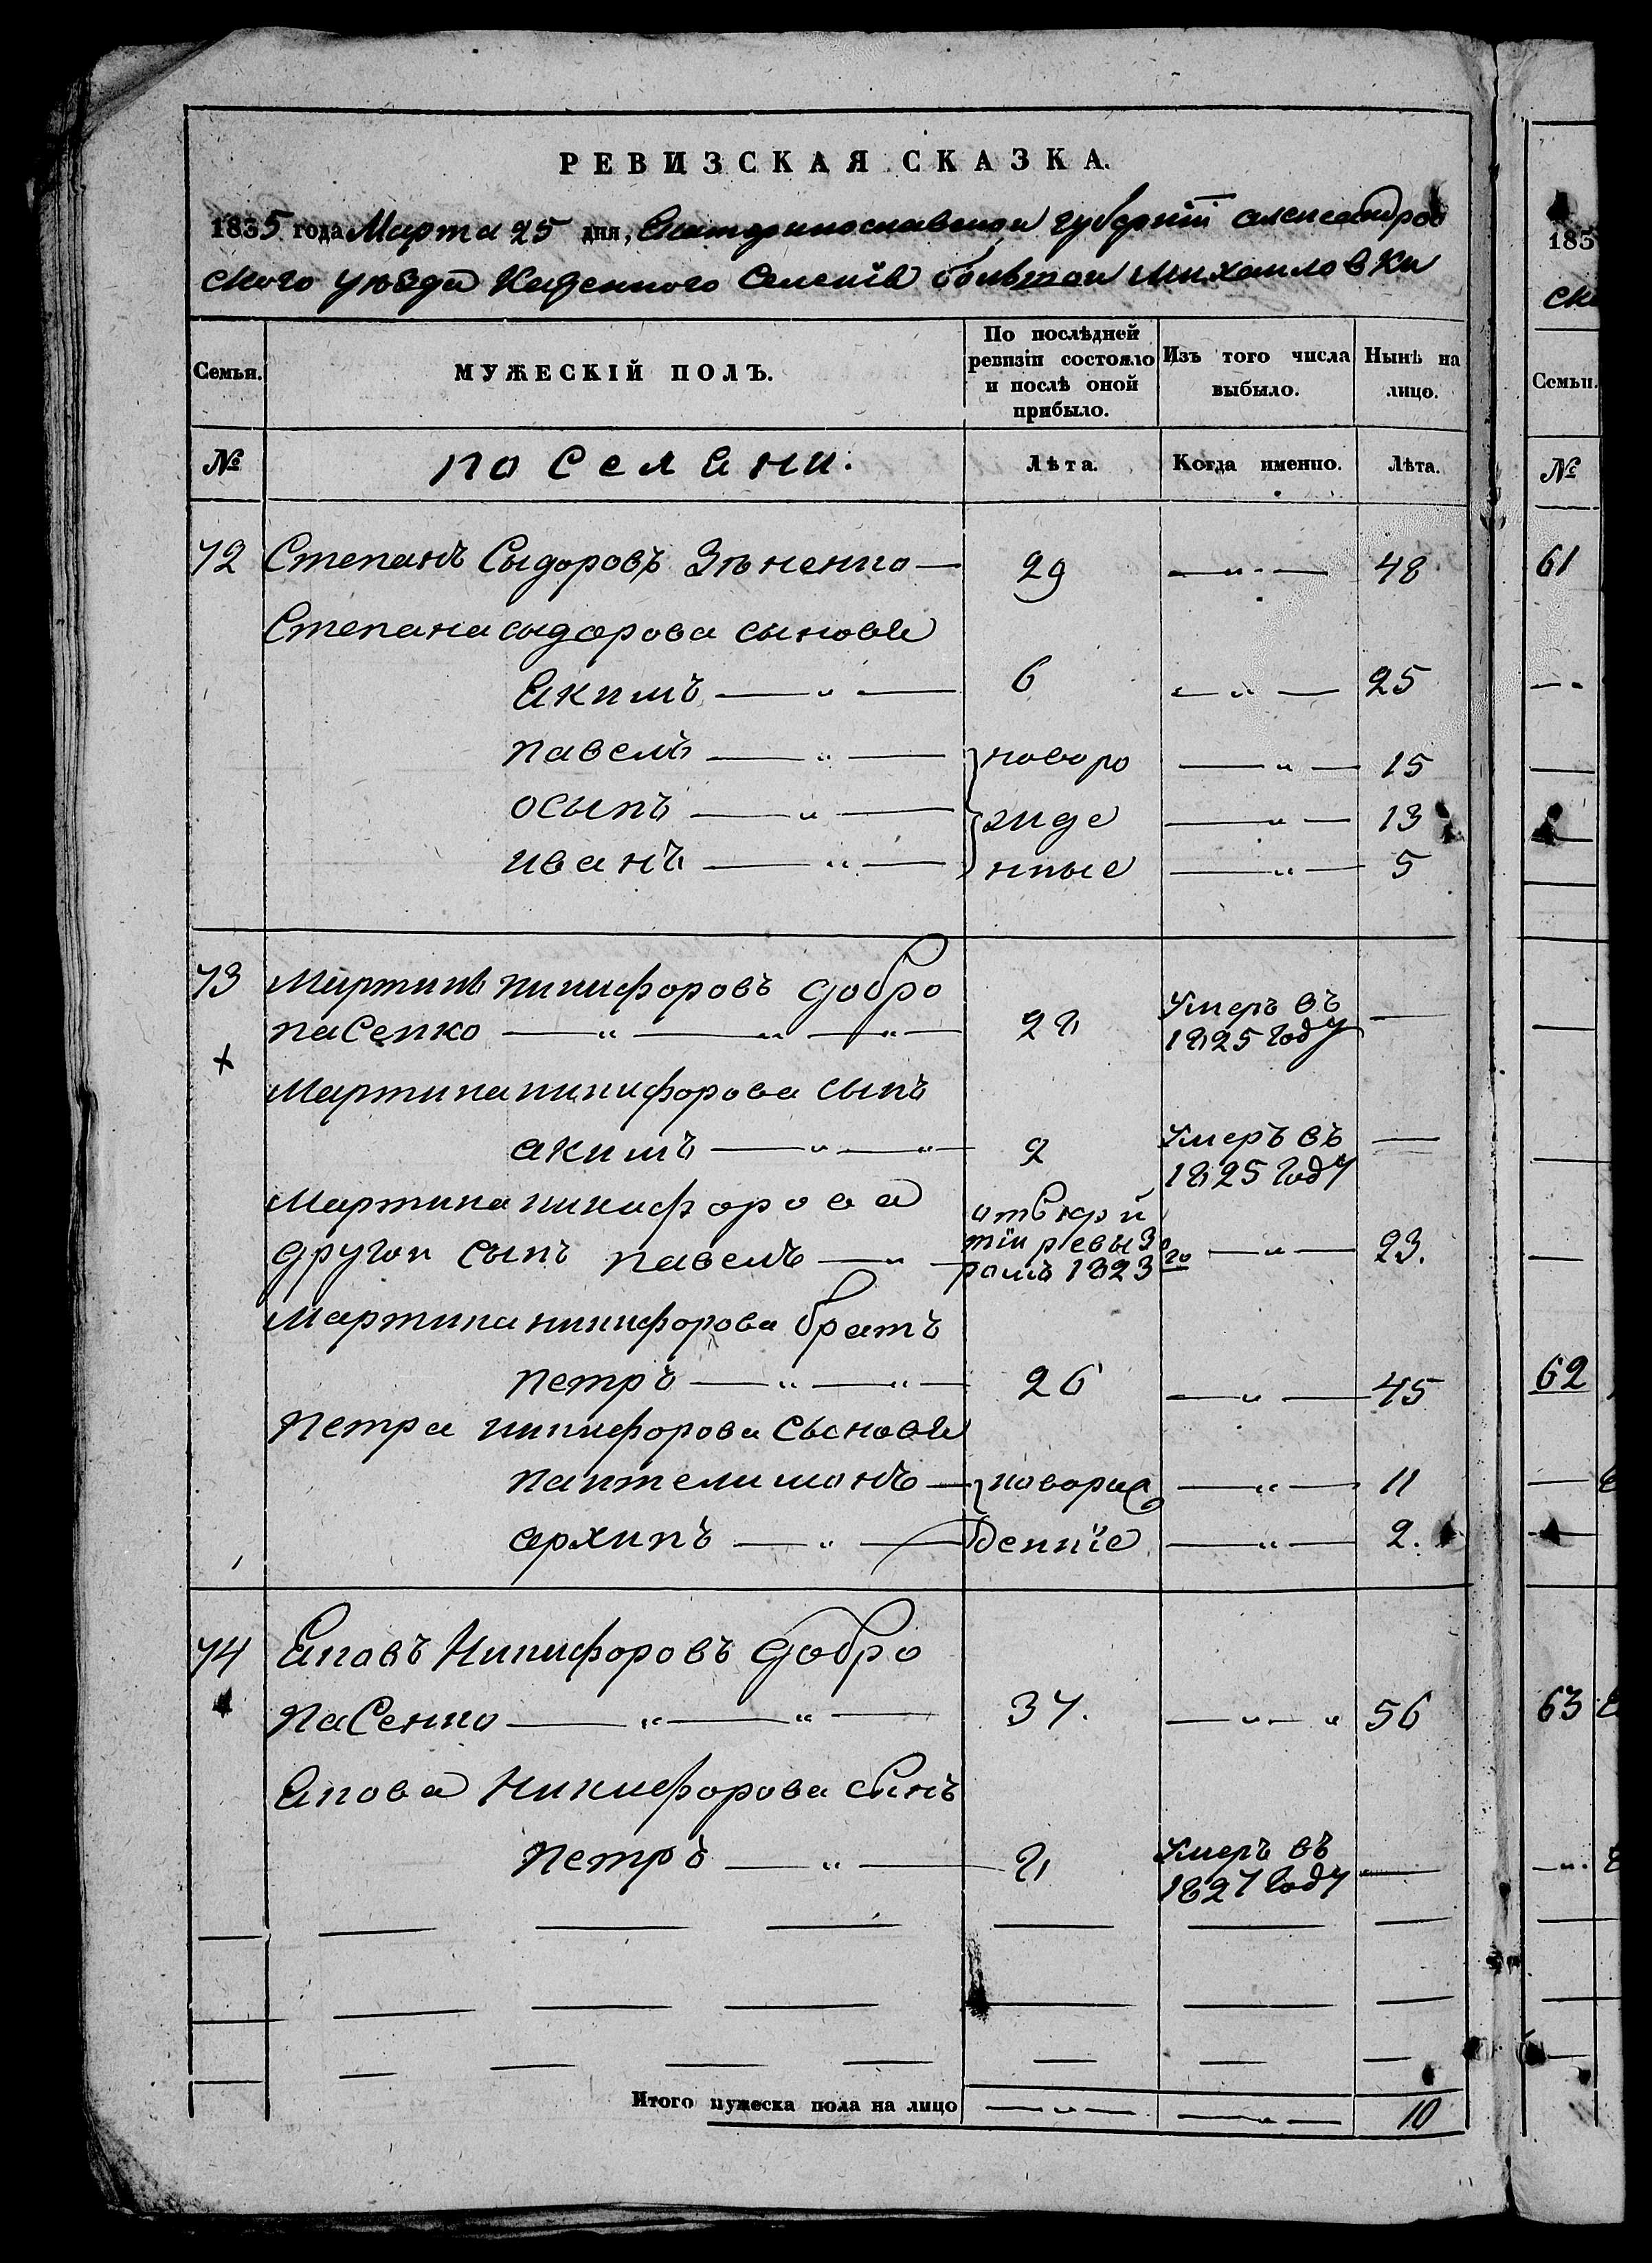 РЕВИЗСКАЯ СКАЗКА.
1835 года Марта 25 дня, Екатеринославской губернiи александров
ского уѣзда Казенного Селенiя большой михайловки
Семьи.
МУЖЕСКІЙ ПОЛЪ.
По послѣдней ревизіи состояло и послѣ оной прибыло.
Изъ того числа выбыло.
Нынѣ на лицо.
№ поселяни. Лѣта. Когда именно. Лѣта.
72 Степанъ Сыдоровъ 29 — „ — 48
Степана сыдорова сыновя
Екимъ — „ — 6 — „ — 25
павелъ — „ — новоро — „ — 15
осыпъ — „ — жде — „ — 13
иванъ — „ — нные — „ — 5
73 Мартинъ никифоровъ добро
пасенко — „ — „ — „ — 22 Умеръ въ 1825 году —
х
Мартина никифорова сынъ
акимъ — „ — „ — 2 Умеръ въ 1825 году —
Мартина никифорова
другои сынъ павелъ — „ — 1823 го — „ — 23.
Мартина никифорова братъ
петръ — „ — „ — 26 — „ — 45
Петра никифорова сыновя
пантелимонъ — новорож — „ — 11
архипъ — „ — деннiе — „ — 2.
74 Никифоровъ добро
пасенко — „ — „ — 37. — „ — „ 56
Никифорова сынъ
петръ — „ — Умеръ въ 1827 году —
Итого мужеска пола на лицо — „ — — „ — 10
185
ск
Семьи.
№
61
62
63